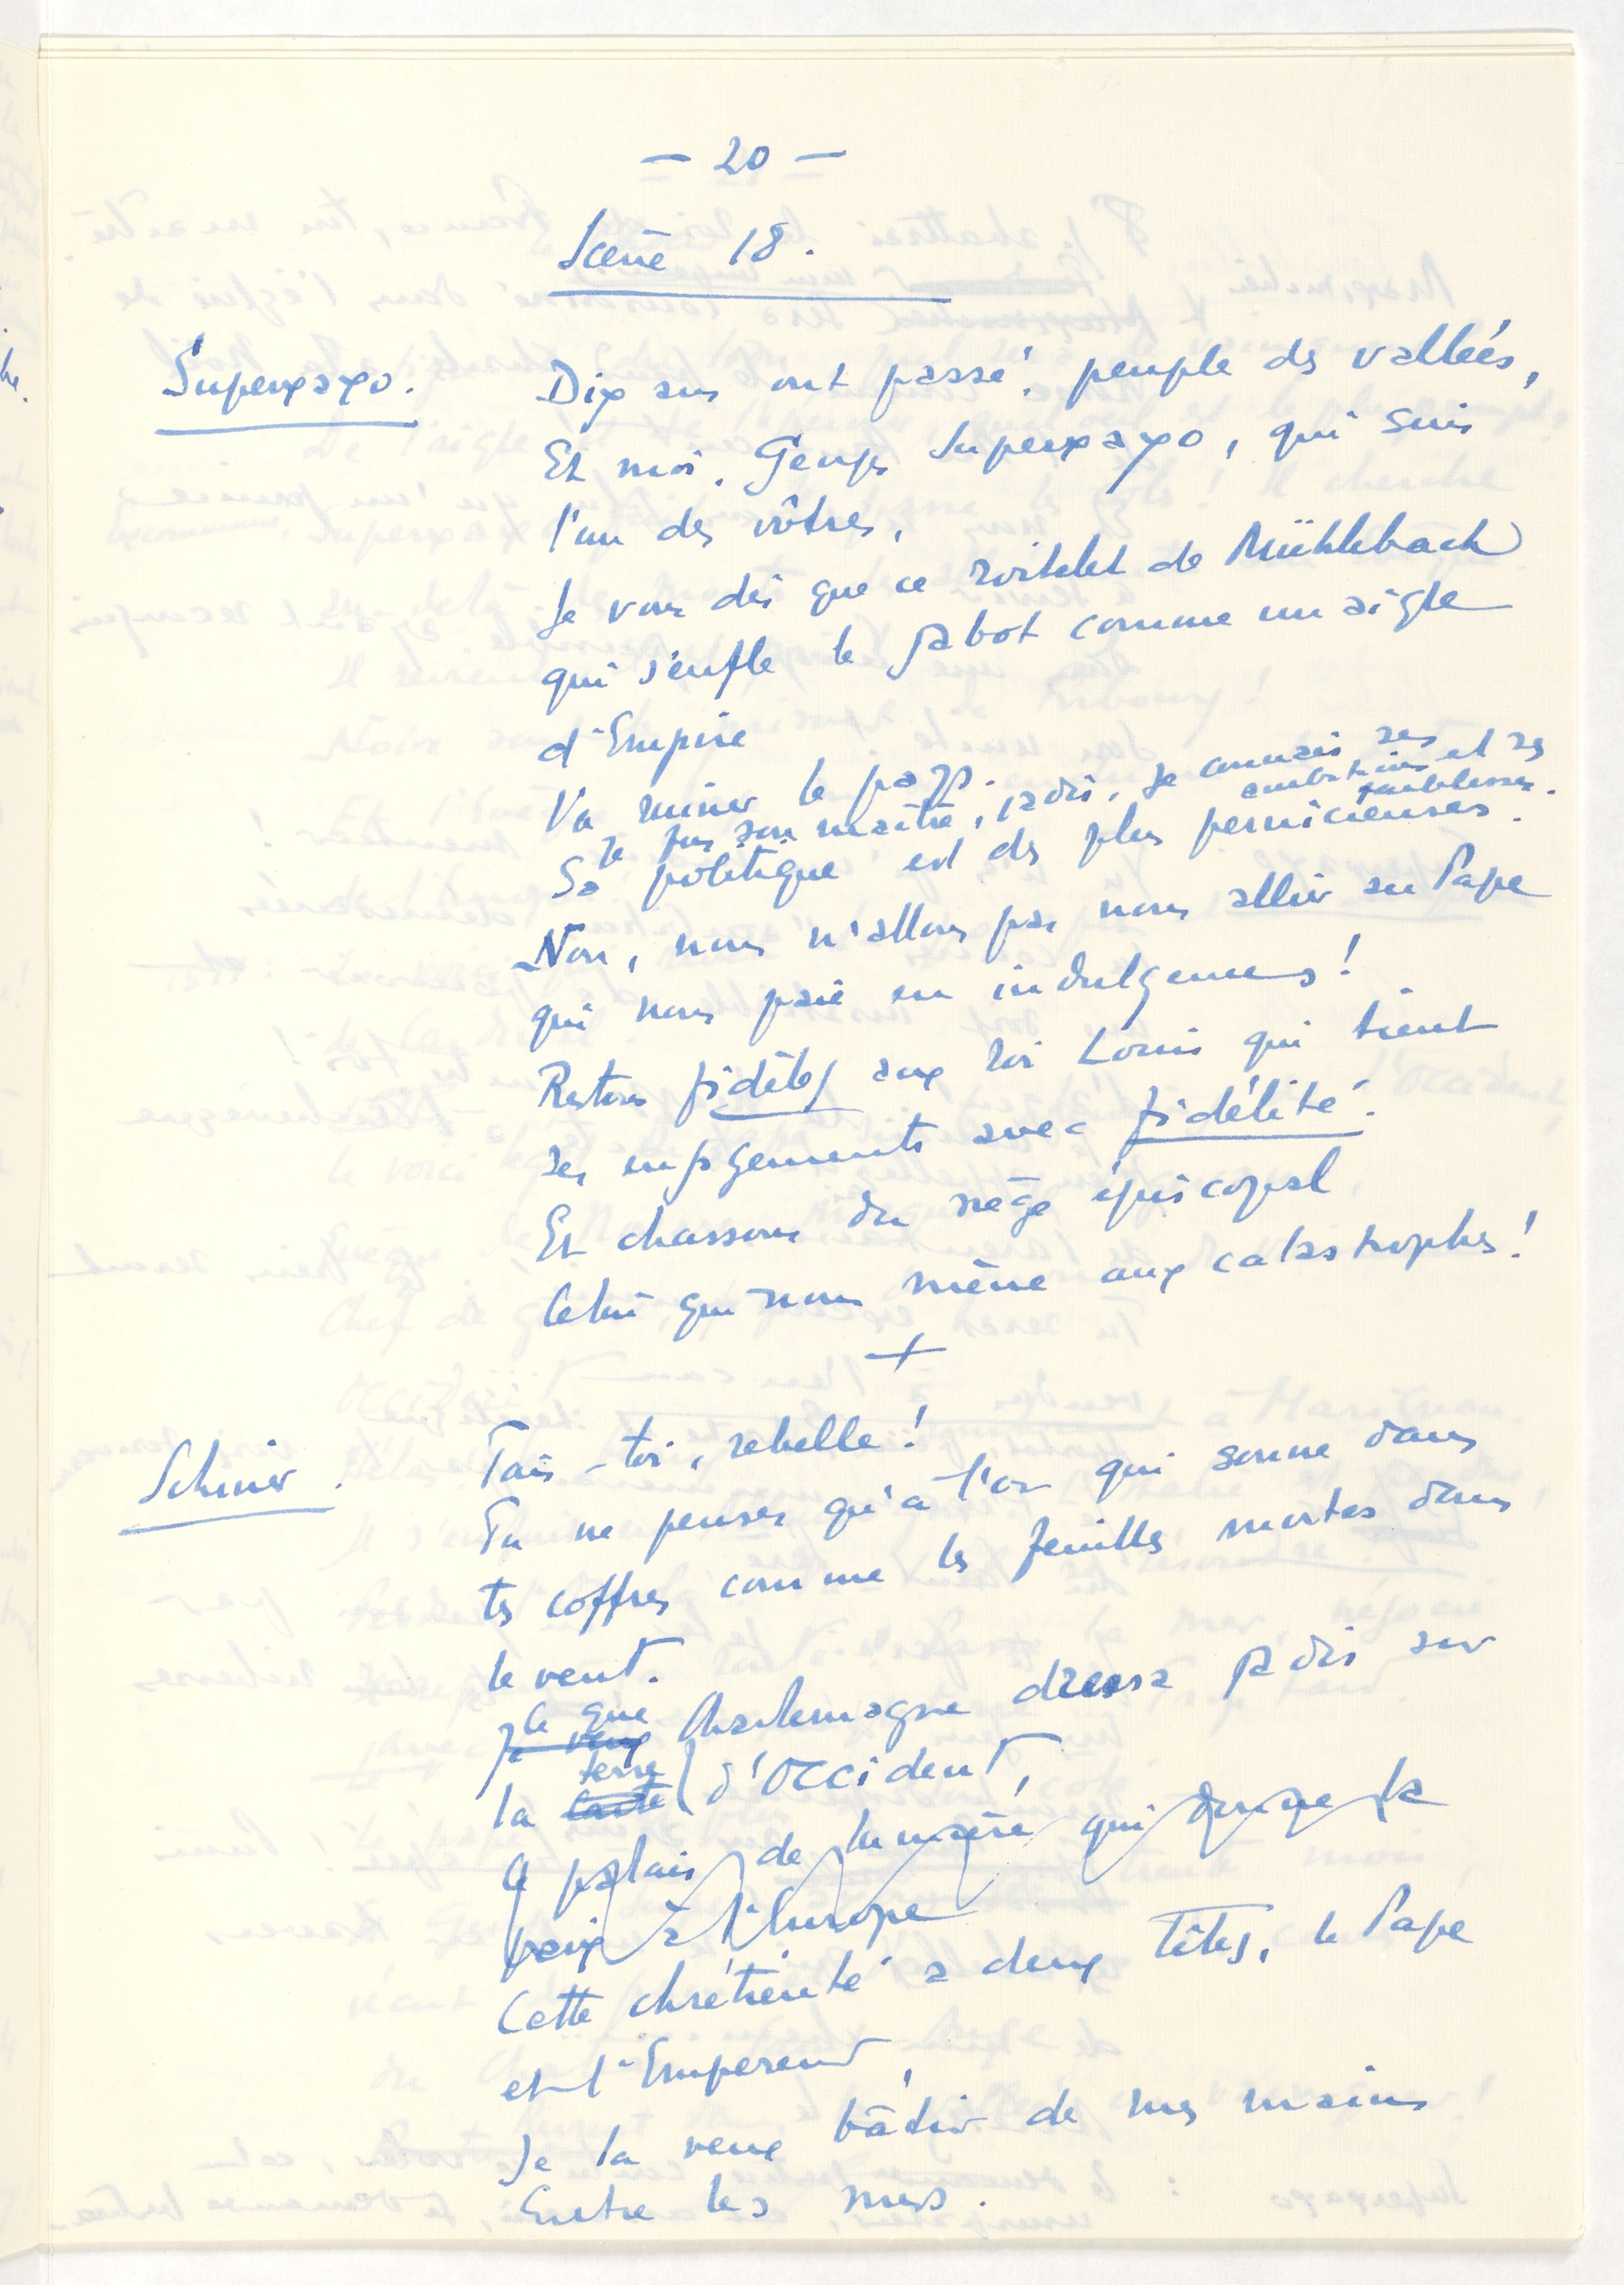 — 20 —
Scène 18.
Supersaxo.
Dix ans ont passé, peuple des vallées,
Et moi, Georges Supersaxo, qui suis
l'un des vôtres,
Je vous dis que ce roitelet de Mühlebach
qui s'enfle le jabot comme un aigle
d'Empire
Va ruiner le pays.
Je fus son maître, jadis, je connais ses ambitions et ses faiblesses.
Sa politique est des plus pernicieuses.
Non, nous n'allons pas nous allier au Pape
qui nous paie en indulgences!
Restons fidèles aux roi Louis qui tient
ses engagements avec fidélité.
Et chassons du siège épiscopal
Celui qui nous mène aux catastrophes!
+
Schiner.
Tais-toi, rebelle!
Tu ne penses qu'à l'or qui sonne dans
tes coffres comme les feuilles mortes dans
le vent.
Je veux
Ce que Charlemagne dressa jadis sur
la carte terre d'Occident,
Ce palais de lumière qui donne la
paix à l'Europe
Cette chrétienté a deux têtes, le Pape
et l'Empereur,
Je la veux bâtir de mes mains
Entre les mers.